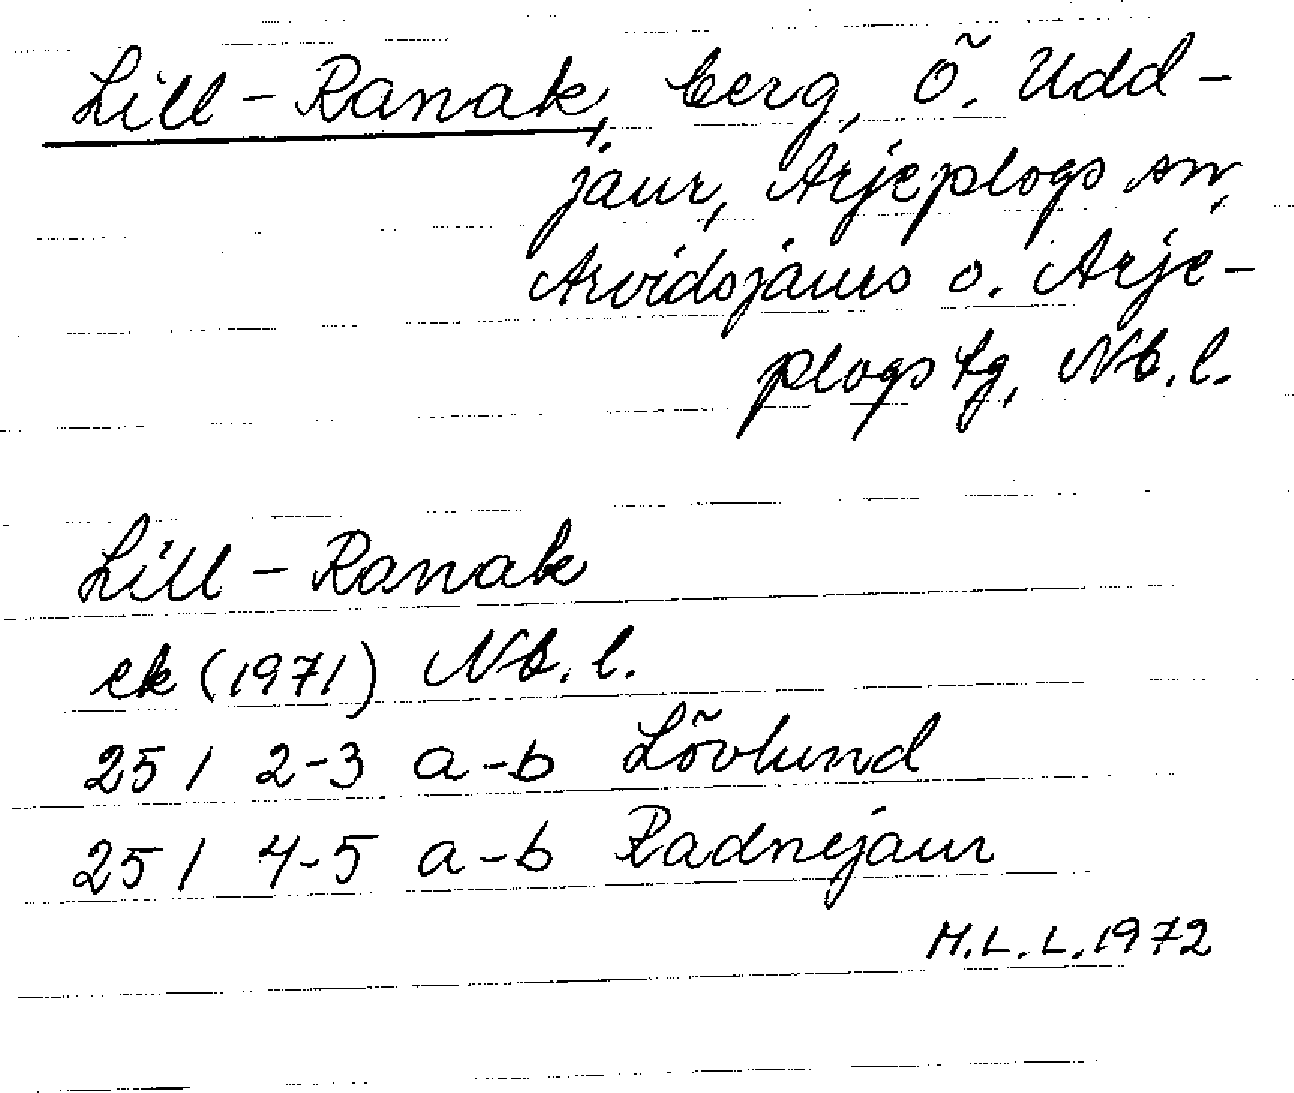 Lill-Ranak, berg, Ö. Udd-
jaur, Arjeplogs sn,
Arvidsjaurs o. Arje-
plogs tg, Nb.l.
Lill-Ranak
ek (1971) Nb.l.
25 I 2-3 a-b Lövlund
25 I 4-5 a-b Radnejaur
M.L.L. 1972